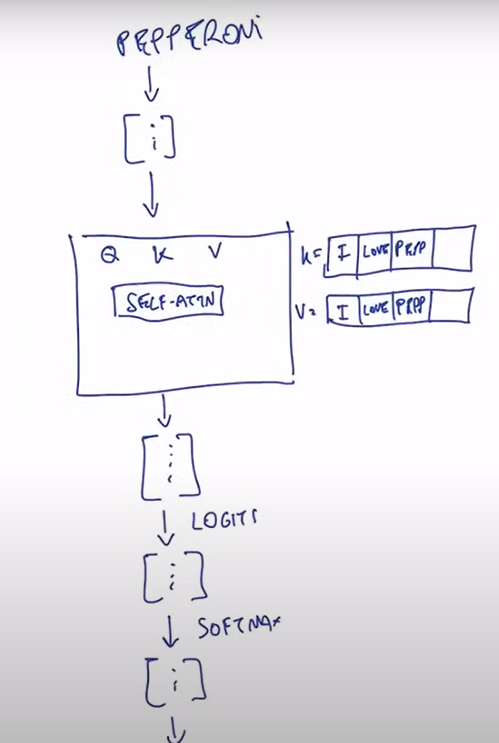 PEPPERONI
Q K V
SELF-ATTN
K= I LOVE PEPP
V= I LOVE PEPP
LOGITS
SOFTMAX